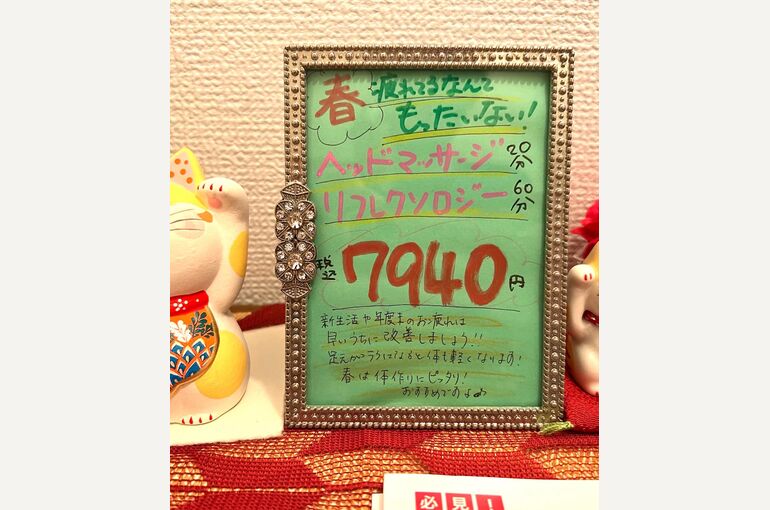 春 疲れてるなんて
もったいない!
ヘッドマッサージ 20分
リフレクソロジー 60分
税込 7940円
新生活や年度末のお疲れは
早いうちに改善しましょう!!
足元がラクになると体も軽くなります!
春は体作りにピッタリ!
おすすめですよ♪
必見!